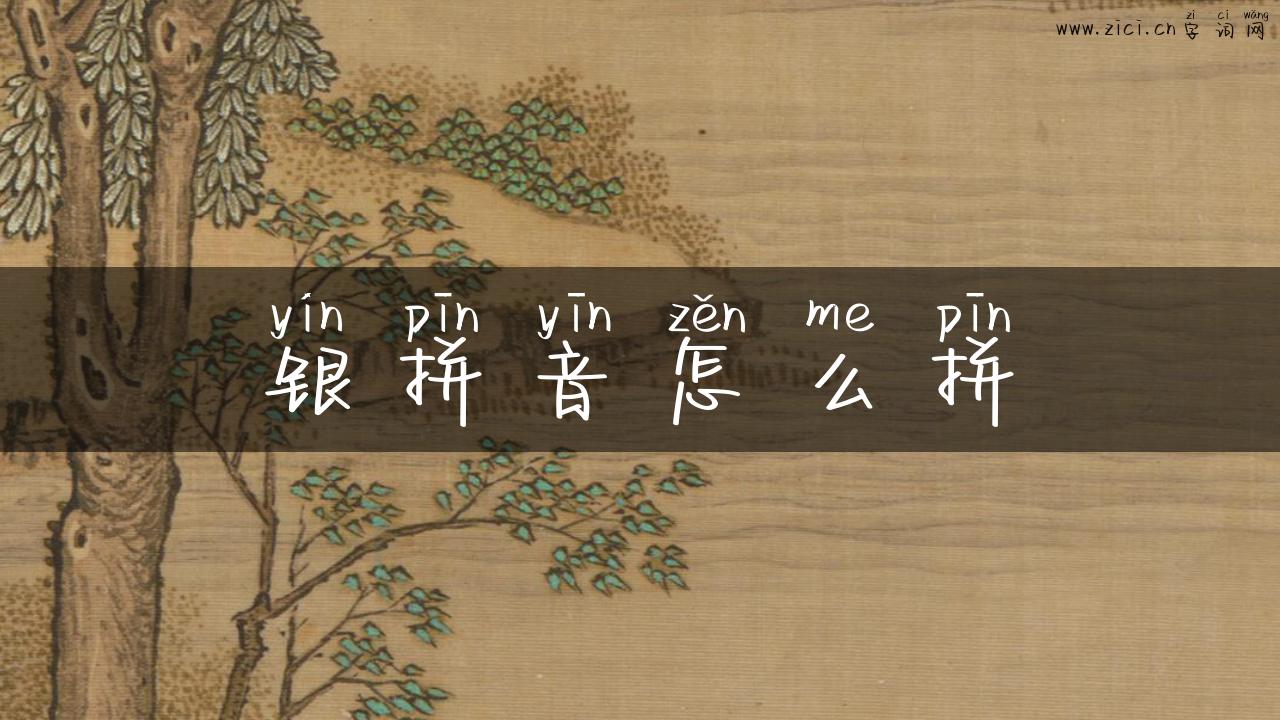 zì cí wǎng
www.zici.cn 字词网
yín pīn yīn zěn me pīn
银拼音怎么拼